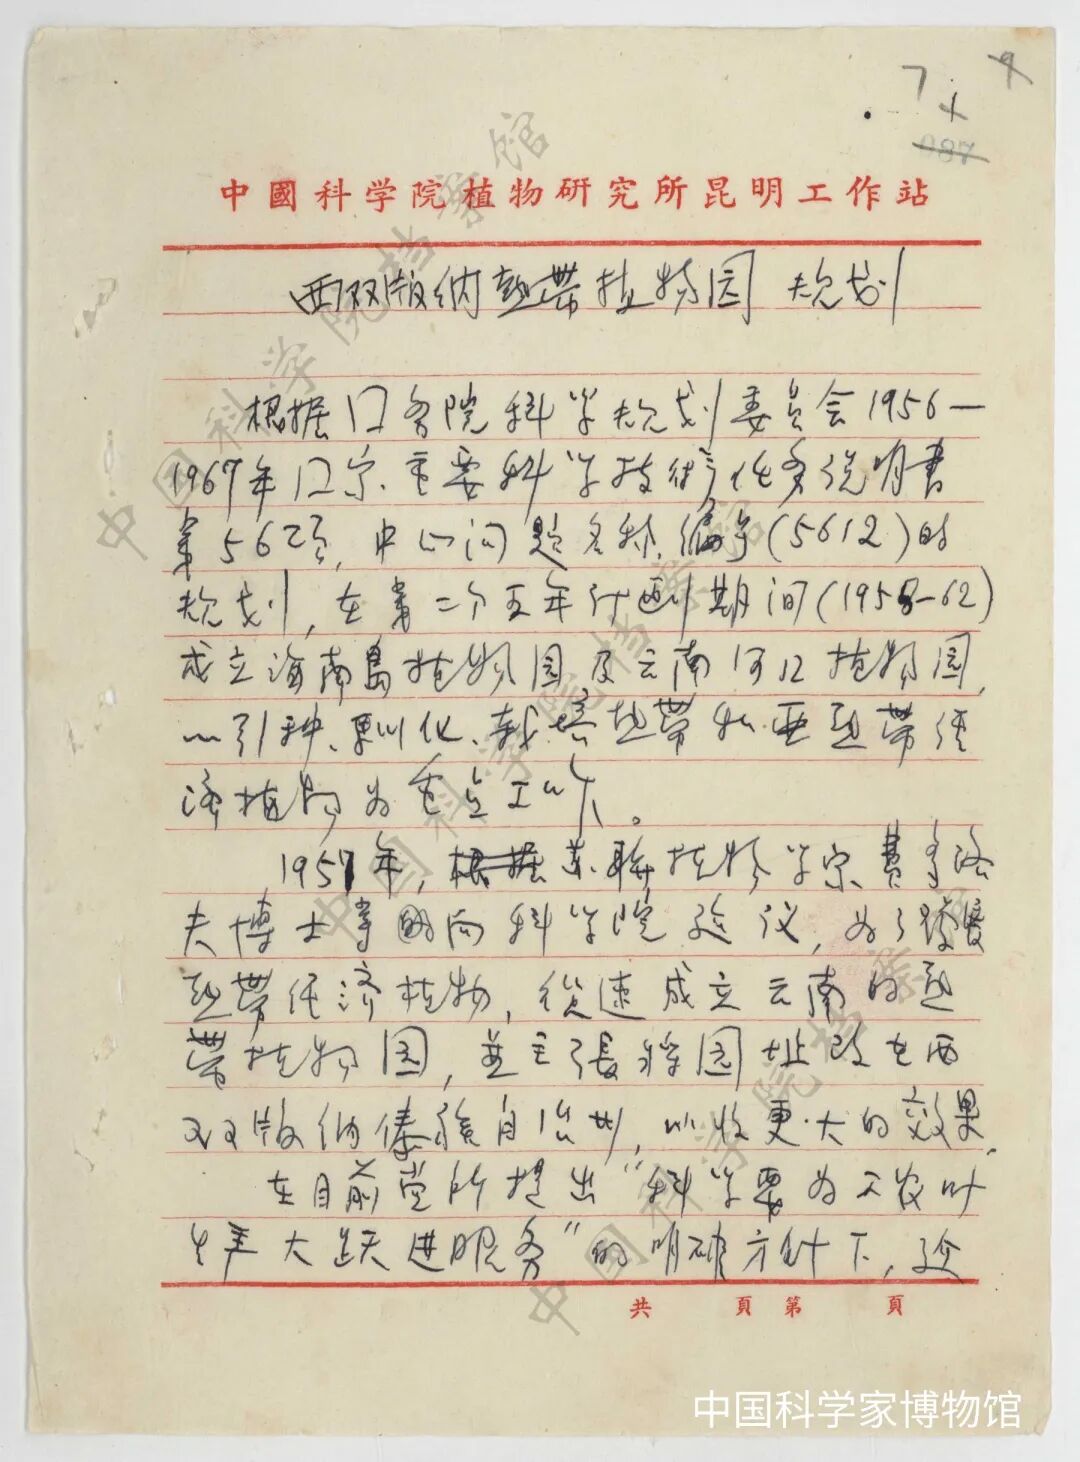 7
987
中國科学院植物研究所昆明工作站
西双版纳热带植物园 规划
根据囗务院科学规划委员会1956—
1967年囗家重要科学技術任务说明書
第56项,中心问题名称编号(5612)的
规划,在第二个五年计画期间(1958—62)
成立海南島植物园及云南河口植物园,
以引种、馴化、栽培热带和亚热带经
济植物为重点工作。
1957年,根据苏聯植物学家費多洛
夫博士等向科学院建议,为了發展
热带经济植物,從速成立云南的热
带植物园,並主張将园址改在西
双版纳傣族自治州,以收更大的效果。
在目前党所提出“科学要为工农业
生产大跃进服务”的明确方针下,建
共 頁第 頁
中国科学院档案馆
中国科学院档案馆
中国科学院档案馆
中国科学家博物馆